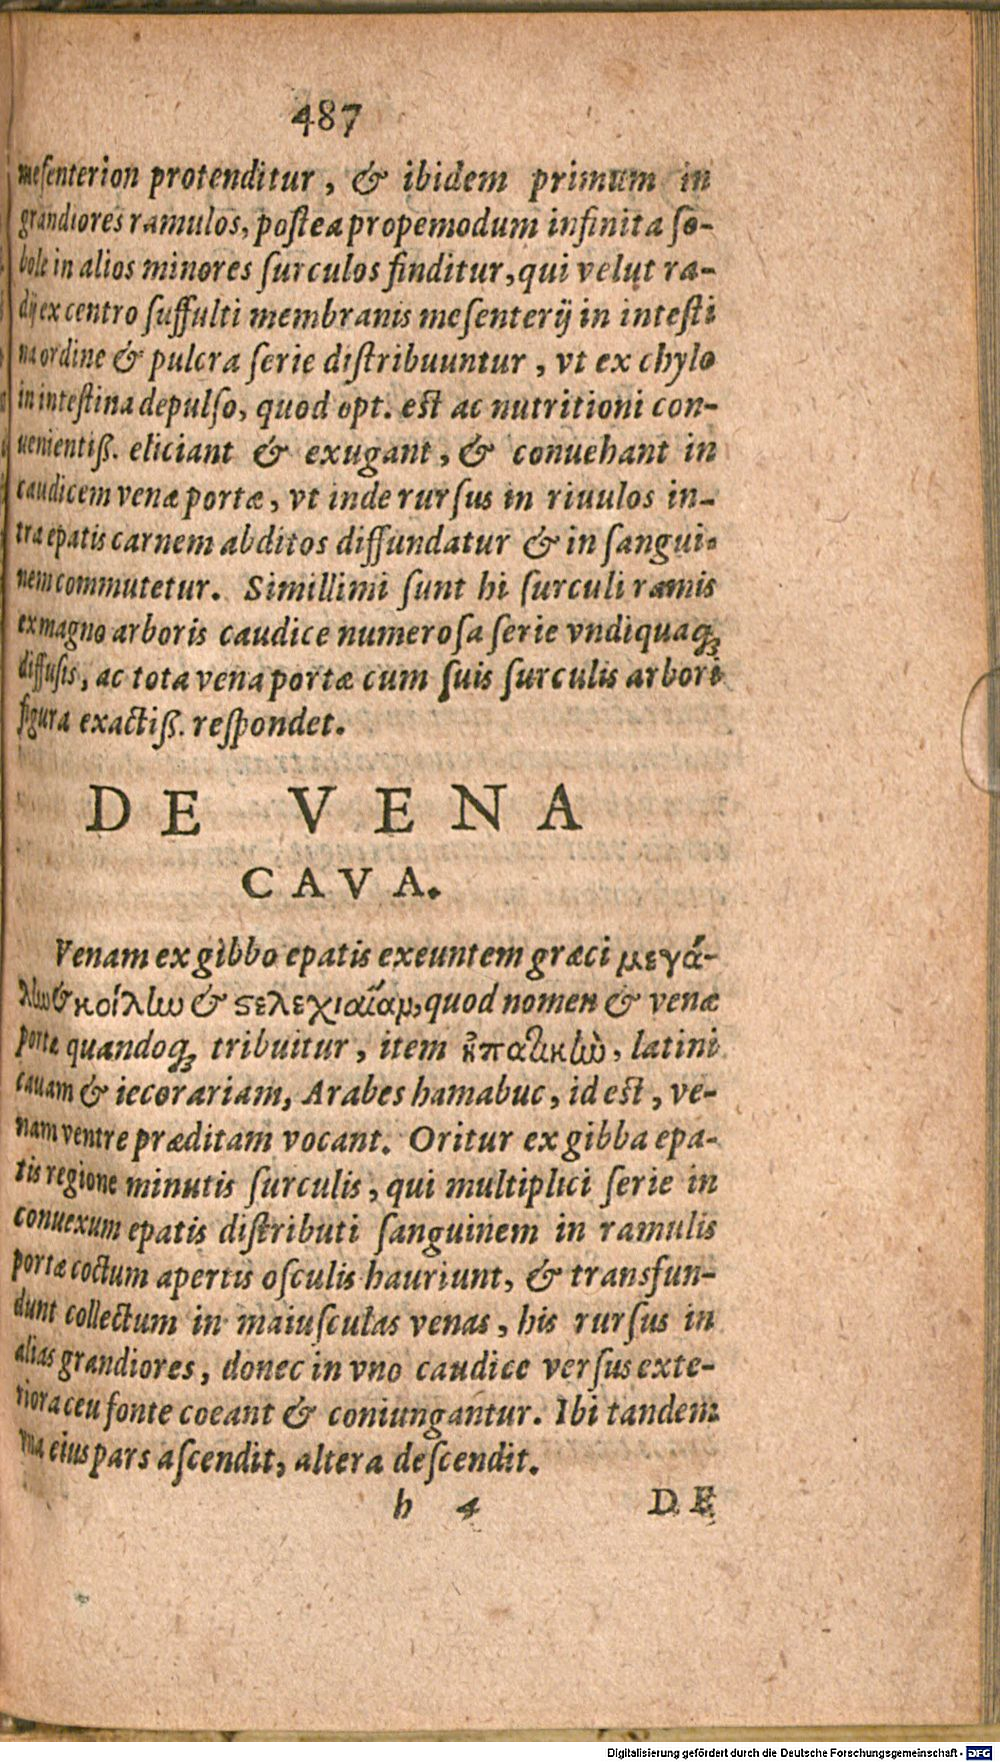 487
meſenterion protenditur, & ibidem primum in
grandiores ramulos, poſtea propemodum infinita ſo-
bole in alios minores ſurculos finditur, qui velut ra-
dij ex centro ſuffulti membranis meſenterij in inteſti
na ordine & pulcra ſerie diſtribuuntur, vt ex chylo
in inteſtina depulſo, quod opt. eſt ac nutritioni con-
uenientiß. eliciant & exugant, & conuehant in
caudicem venæ portæ, vt inde rurſus in riuulos in-
tra epatis carnem abditos diffundatur & in ſangui-
nem commutetur. Simillimi ſunt hi ſurculi ramis
ex magno arboris caudice numeroſa ſerie vndiquaq;
diffuſis, ac tota vena portæ cum ſuis ſurculis arbori
figura exactiß. reſpondet.
DE VENA
CAVA.
Venam ex gibbo epatis exeuntem græci μεγά-
λω & κοίλω & ϛελεχιαίαμ, quod nomen & venæ
portæ quandoq; tribuitur, item ἠπατικὼ, latini
cauam & iecorariam, Arabes hamabuc, id eſt, ve-
nam ventre præditam vocant. Oritur ex gibba epa-
tis regione minutis ſurculis, qui multiplici ſerie in
conuexum epatis diſtributi ſanguinem in ramulis
portæ coctum apertis oſculis hauriunt, & transfun-
dunt collectum in maiuſculas venas, his rurſus in
alias grandiores, donec in vno caudice verſus exte-
riora ceu fonte coeant & coniungantur. Ibi tandem
vna eius pars aſcendit, altera deſcendit.
h 4 DE
Digitalisierung gefördert durch die Deutsche Forschungsgemeinschaft - DFG